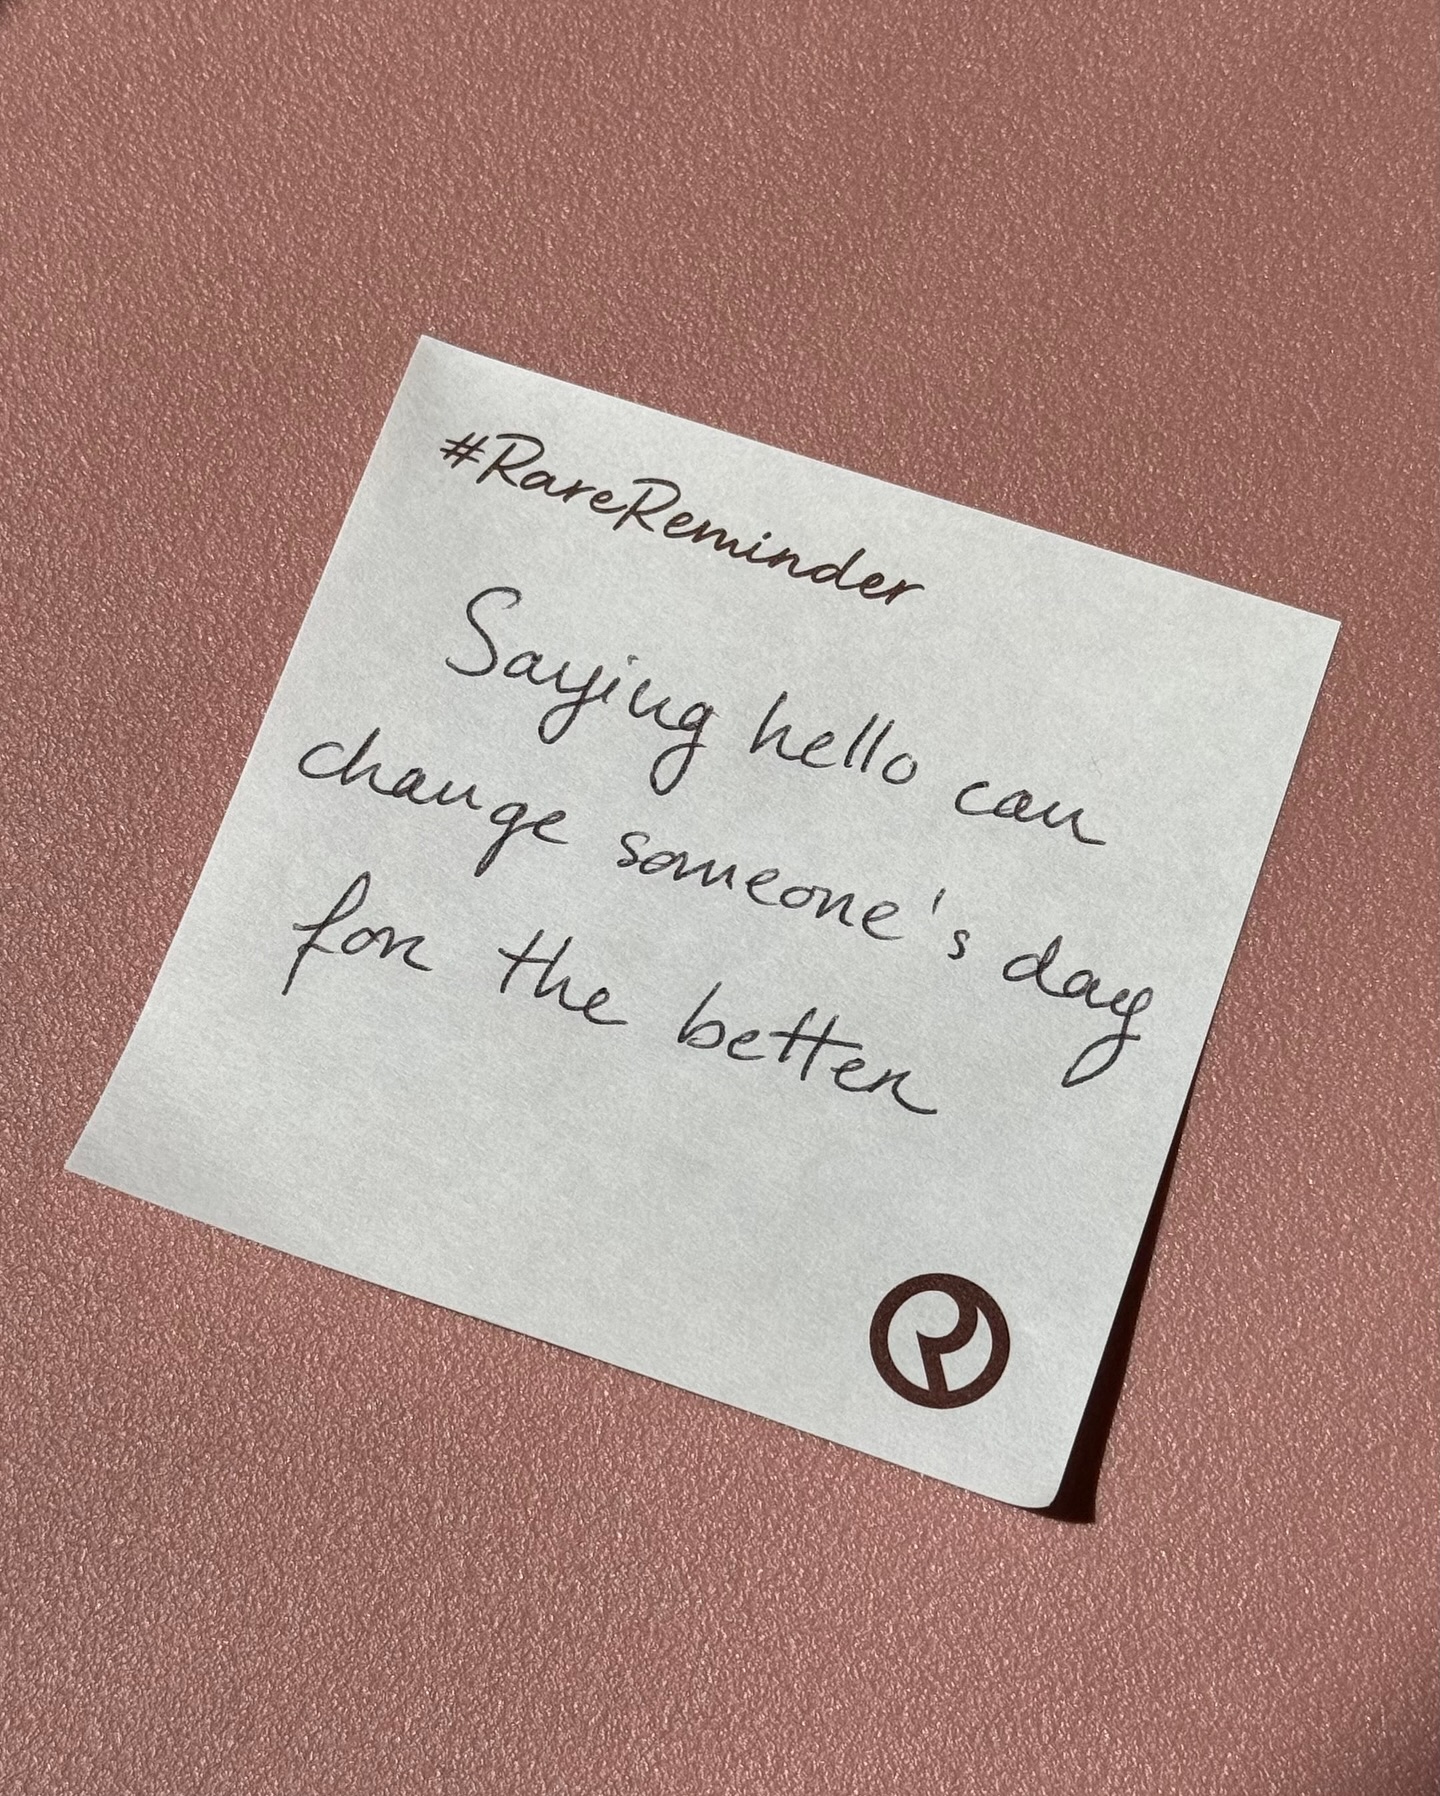 #RareReminder
Saying hello can
change someone's day
for the better
R